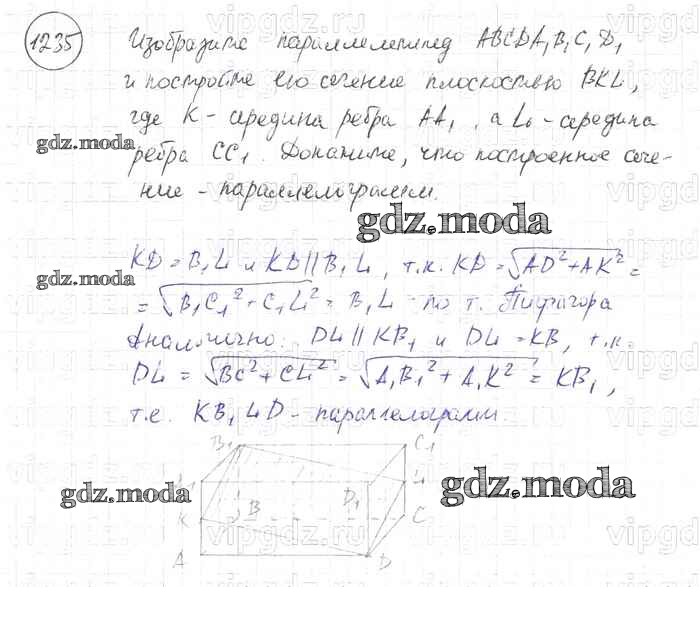 1235
Изобразите параллелепипед ABCDA₁B₁C₁D₁
и постройте его сечение плоскостью BKL,
где K - середина ребра AA₁, а L - середина
ребра CC₁. Докажите, что построенное сече-
ние - параллелограмм.
gdz.moda
gdz.moda
KD = B₁L и KD || B₁L, т.к. KD = √AD²+AK² =
= √B₁C₁²+C₁L² = B₁L - по т. Пифагора
gdz.moda
Аналогично: DL || KB₁ и DL = KB, т.к.
DL = √BC²+CL² = √A₁B₁²+A₁K² = KB₁,
т.е. KB₁LD - параллелограмм.
B₁ C₁
L
D₁
K B C
A D
gdz.moda
gdz.moda